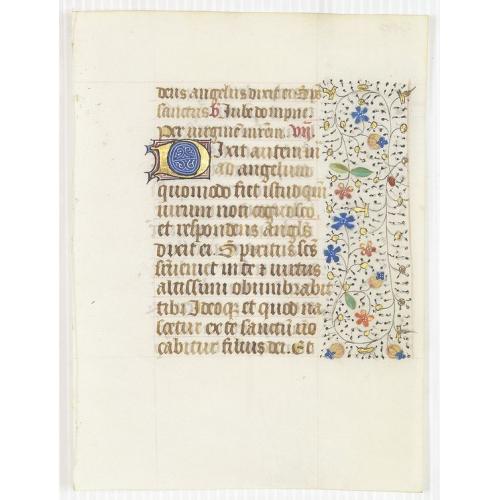 deus angelus dixit ei Sps
sanctus b. Iube dompne
Per virginē mrēm. vij.
Dixit autem m
ad angelum
quomodo fiet istud qm̄
uirum non cognosco
et respondens Angl̄s
dixit ei. Spiritus scs̄
seruenet in te ⁊ virtus
altissimi obumbrabit
tibi Ideoqꝫ et quod na
scetur ex te sanctū uo
cabitur filius dei. Et